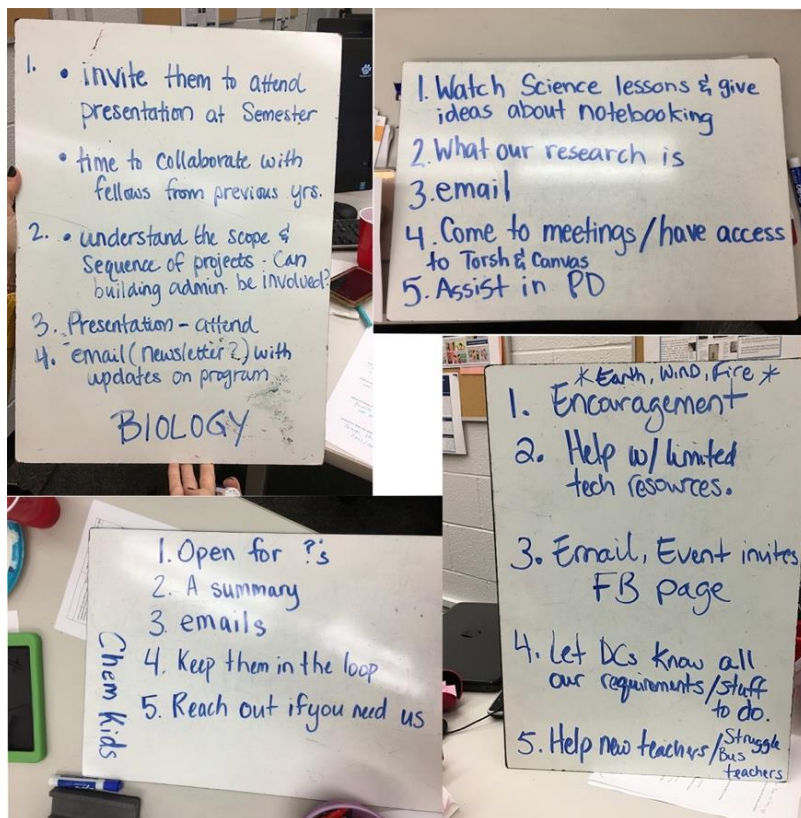 1. • invite them to attend
presentation at Semester
• time to collaborate with
fellows from previous yrs.
2. • understand the scope &
Sequence of projects - Can
building admin. be involved?
3. Presentation - attend
4. email (newsletter?) with
updates on program
BIOLOGY
1. Watch Science lessons & give
ideas about notebooking
2. What our research is
3. email
4. Come to meetings/have access
to Torsh & Canvas
5. Assist in PD
1. Open for ?'s
2. A summary
3. emails
4. Keep them in the loop
5. Reach out if you need us
Chem Kids
* Earth, WIND, Fire *
1. Encouragement
2. Help w/ limited
tech resources.
3. Email, Event invites
FB page
4. Let DCs know all
our requirements/stuff
to do.
5. Help new teachers/Struggle
Bus
teachers